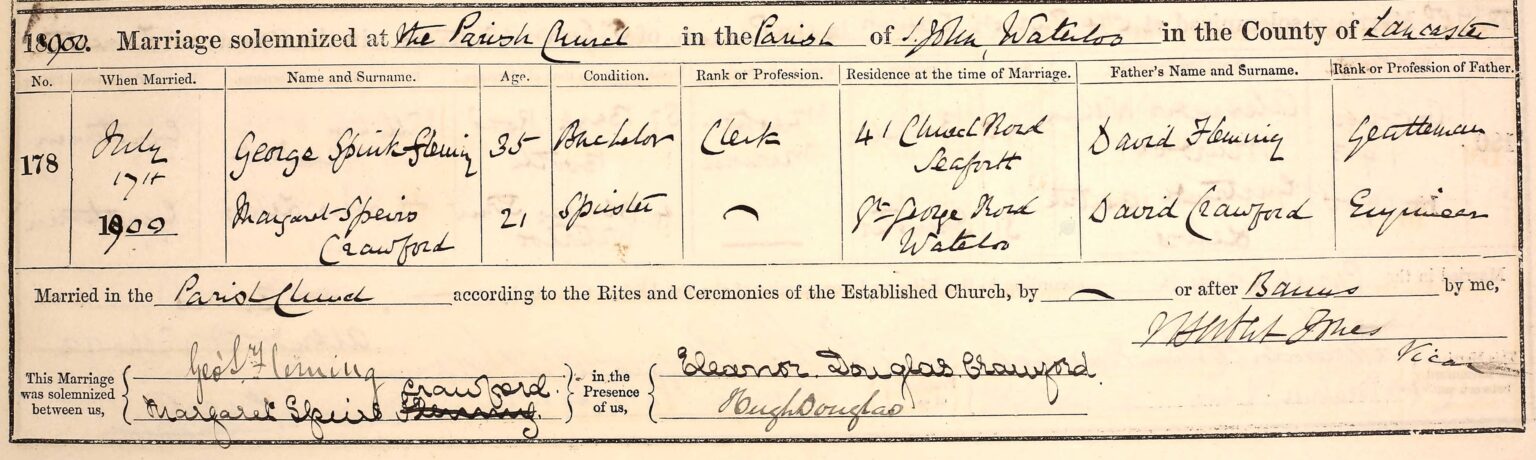 1900. Marriage solemnized at the Parish Church in the Parish of S. John, Waterloo in the County of Lancaster
No. When Married. Name and Surname. Age. Condition. Rank or Profession. Residence at the time of Marriage. Father's Name and Surname. Rank or Profession of Father.
178 July 17th 1900 George Spink Fleming 35 Bachelor Clerk 41 Church Road Seaforth David Fleming Gentleman
Margaret Speirs Crawford 21 Spinster — Gt George Road Waterloo David Crawford Engineer
Married in the Parish Church according to the Rites and Ceremonies of the Established Church, by — or after Banns by me,
Jones
Vicar
This Marriage was solemnized between us, { Geo. S. Fleming } in the Presence of us, { Eleanor Douglas Crawford.
Margaret Speirs Crawford. Fleming. Hugh Douglas